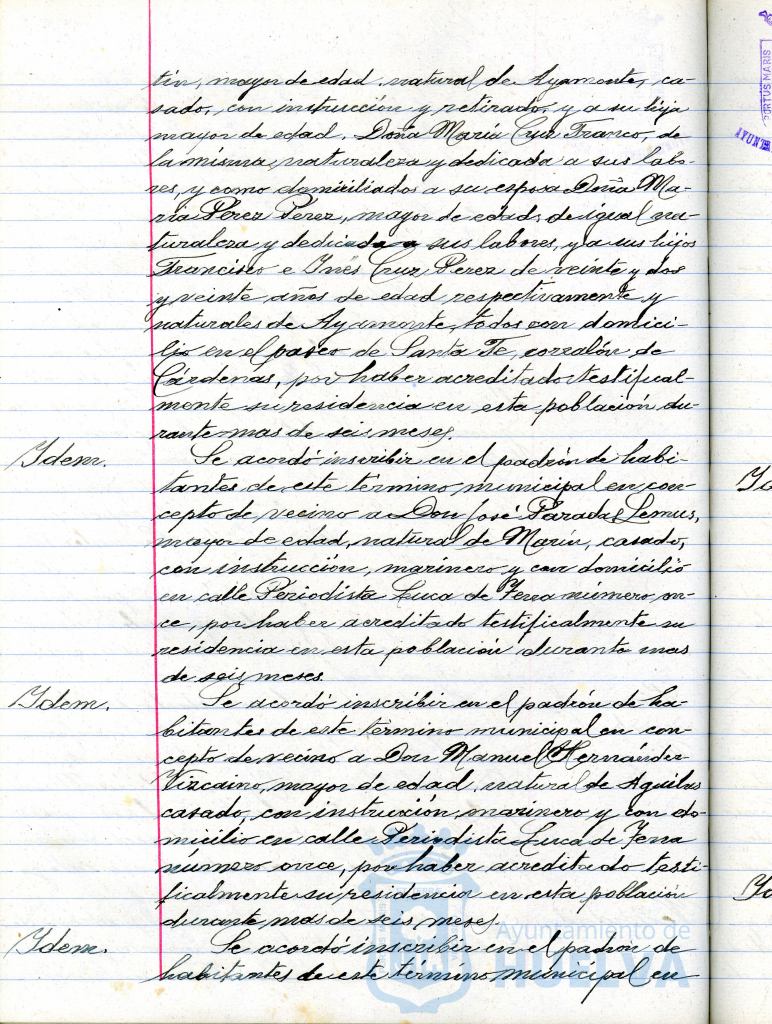 tin, mayor de edad, natural de Ayamonte, ca-
sado, con instrucción y retirado, y a su hija
mayor de edad, Doña María Cruz Franco, de
la misma naturaleza y dedicada a sus labo-
res, y como domiciliados a su esposa Doña Ma-
ría Pérez Pérez, mayor de edad, de igual na-
turaleza y dedicada a sus labores, y a sus hijos
Francisco e Inés Cruz Pérez de veinte y dos
y veinte años de edad respectivamente y
naturales de Ayamonte, todos con domici-
lio en el paseo de Santa Fe, corralón de
Cárdenas, por haber acreditado testifical-
mente su residencia en esta población du-
rante mas de seis meses.
Idem. Se acordó inscribir en el padrón de habi-
tantes de este término municipal en con-
cepto de vecino a Don José Paradas Lemus,
mayor de edad, natural de Marín, casado,
con instrucción, marinero y con domicilio
en calle Periodista Luca de Tena número on-
ce, por haber acreditado testificalmente su
residencia en esta población durante mas
de seis meses.
Idem. Se acordó inscribir en el padrón de ha-
bitantes de este término municipal en con-
cepto de vecino a Don Manuel Hernández
Vizcaino, mayor de edad, natural de Aguilas
casado, con instrucción, marinero y con do-
micilio en calle Periodista Luca de Tena
número once, por haber acreditado testi-
ficalmente su residencia en esta población
durante mas de seis meses.
Idem. Se acordó inscribir en el padrón de
habitantes de este término municipal en
Ayuntamiento de
HUELVA
PORTUS MARIS